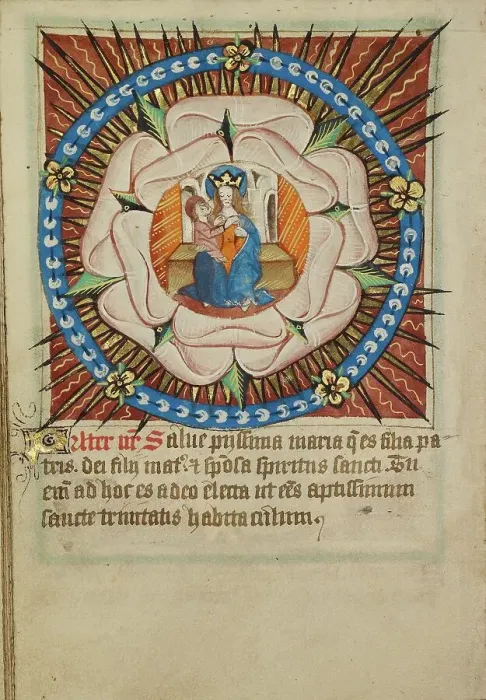 Pater nr̄ Salue pijssima maria q̄ es filia pa-
tris. dei filij mat̉. ⁊ spōsa spiritus sancti. Tu
enī ad hoc es adeo electa ut eēs aptissimum
sancte trinitatis habitaculum.